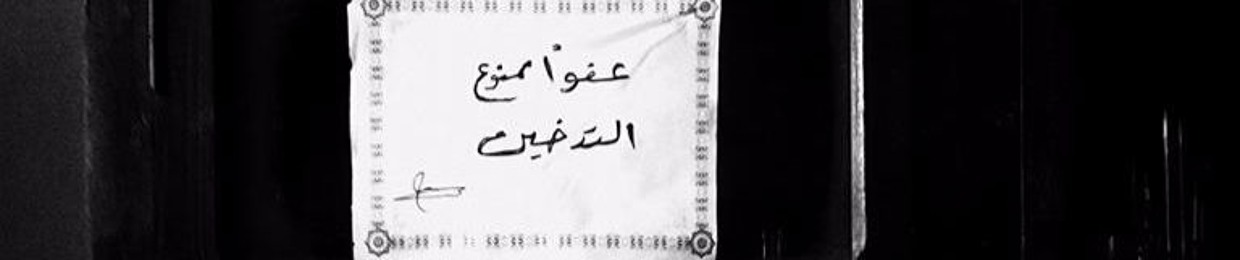 عفواً ممنوع
التدخين